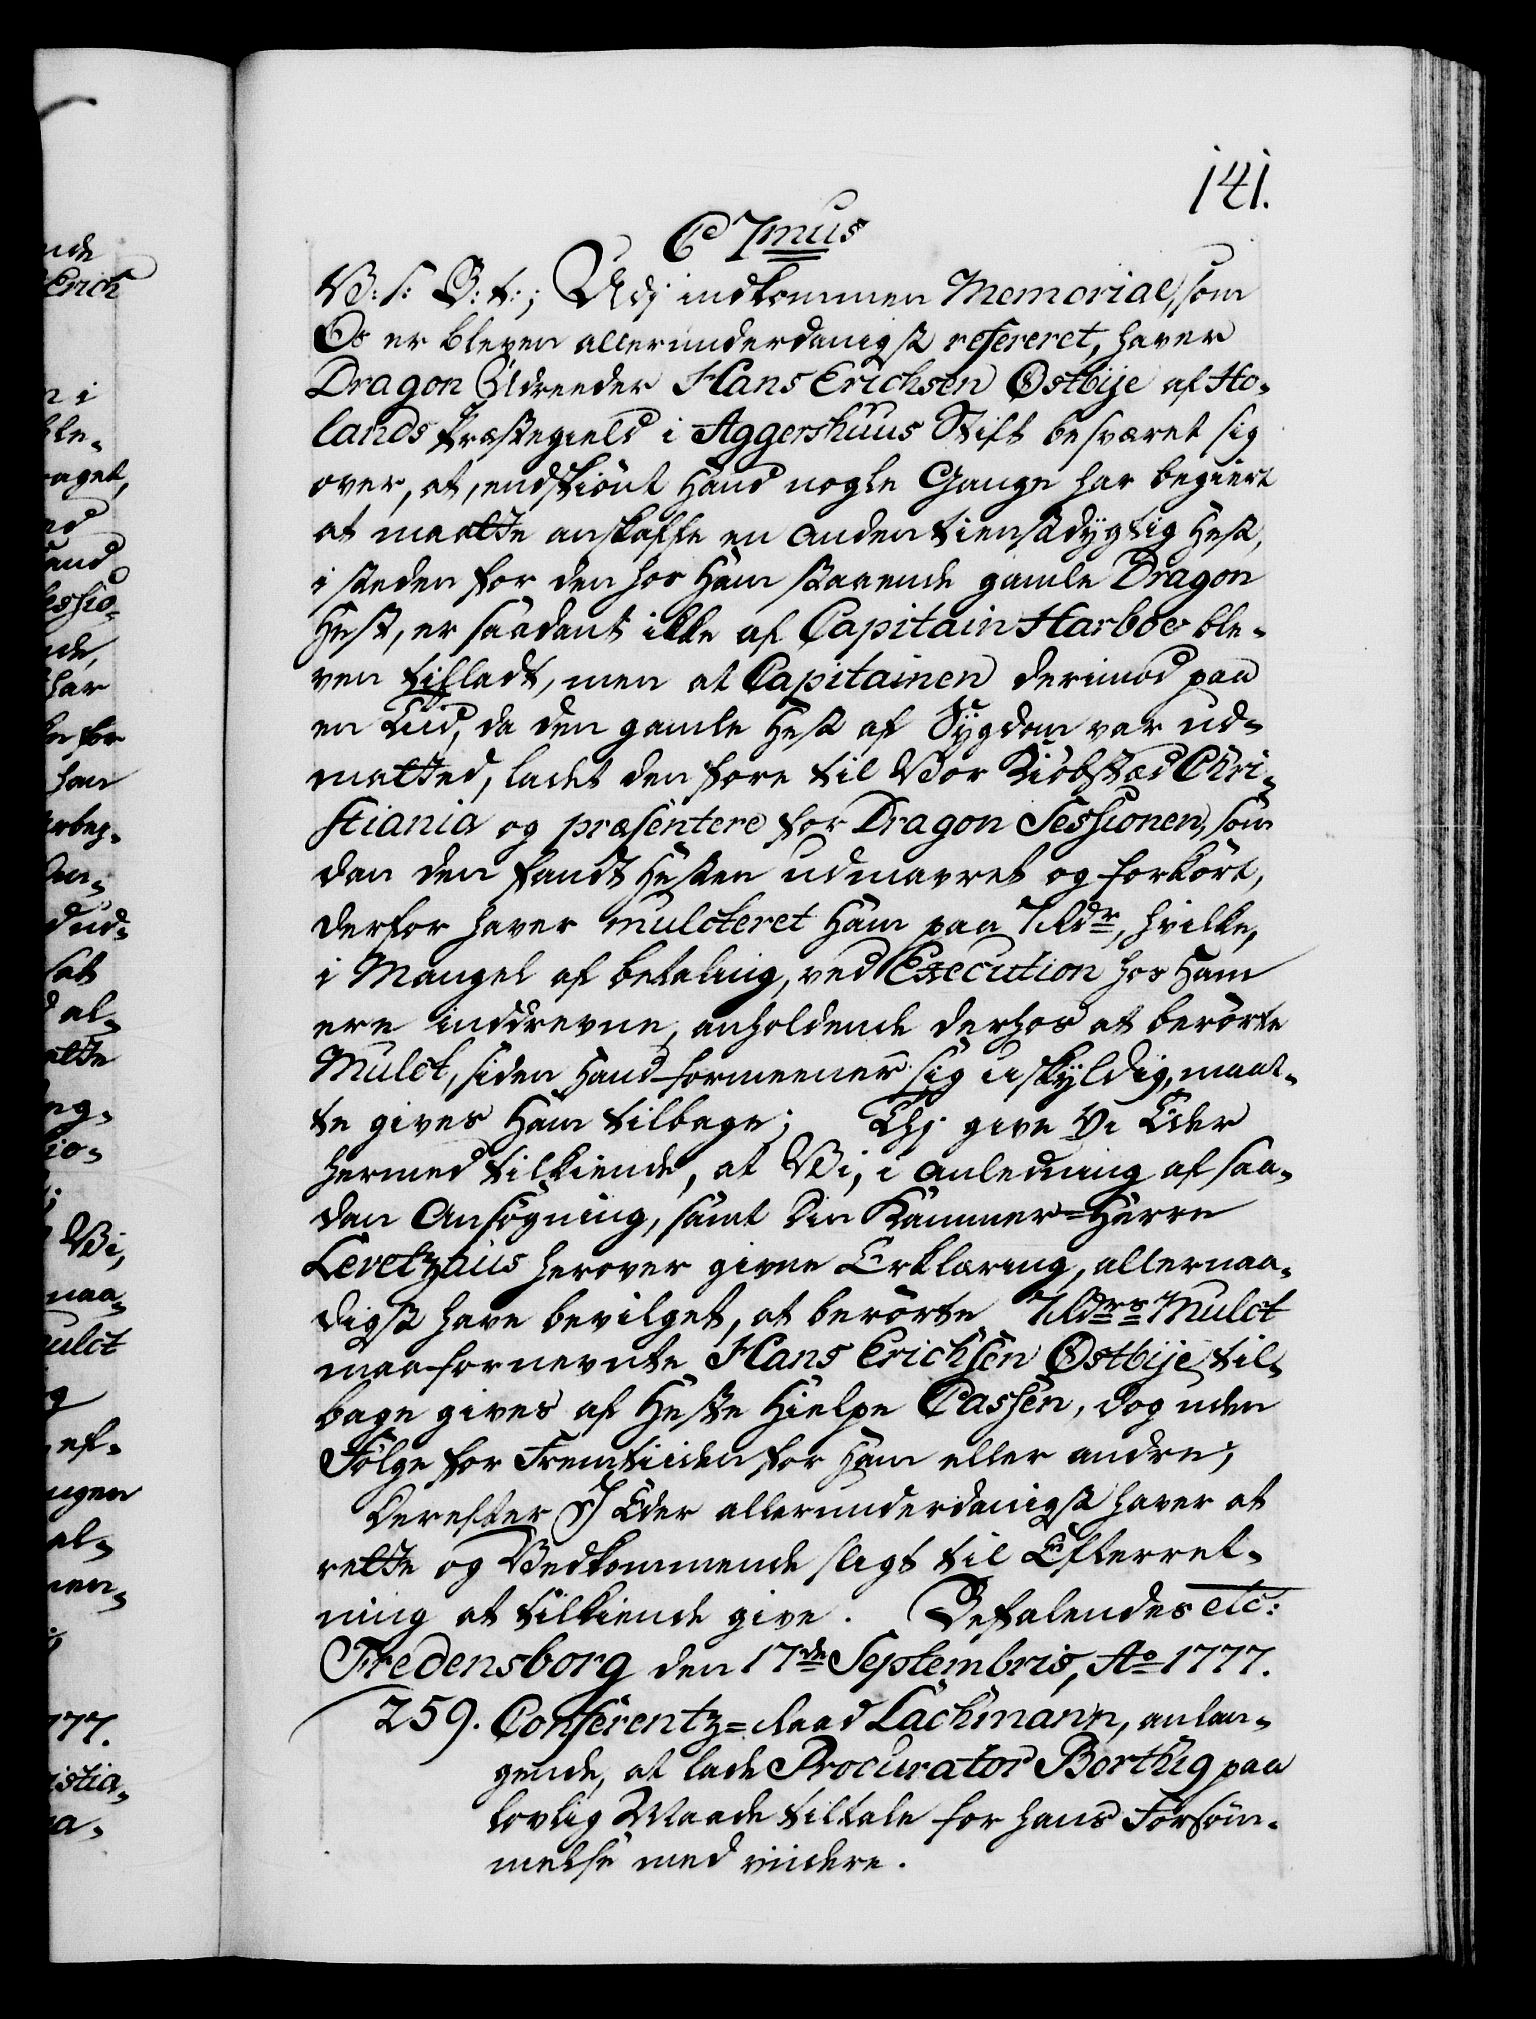 141.
C 7mus
V: S: G: T:; Udj indkommen Memorial, som
Os er bleven allerunderdanigst refereret, haver
Dragon Udreeder Hans Erichsen Østbije af Ho-
lands Præstegield i Aggershuus Stift besværet sig
over, at, endskiönt Hand nogle Gange har begiert
at maatte anskaffe en anden tienstdygtig Hest,
i steden for den hos Ham staaende gamle Dragon
Hest, er saadant ikke af Capitain Harboe ble-
ven tilladt, men at Capitainen derimod paa
en Tiid, da den gamle Hest af Sygdom var ud-
matted, ladet den före til Vor Kiöbstæd Chri-
stiania og præsentere for Dragon Sessionen, som
da den fandt Hesten udmavret og forkört,
derfor haver mulcteret Ham paa 7 Rdr, hvilke,
i Mangel af betaling, ved Execution hos Ham
ere inddrevne, anholdende derhos at berörte
Mulct, siden Hand formeener sig uskyldig, maat-
te gives Ham tilbage; Thj give Vi Eder
hermed tilkiende, at Vi, i anledning af saa-
dan Ansögning, samt Din Kammer-Herre
Levetzaus herover givne Erklæring, allernaa-
digst have bevilget, at berörte 7 Rdrs Mulct
maa fornevnte Hans Erichsen Østbije til-
bage gives af Heste Hielpe Cassen, dog uden
Fölge for Fremtiiden for Ham eller andre;
Derefter I Eder allerunderdanigst haver at
rette og Vedkommende sligt til Efterret-
ning at tilkiende give. Befalendes etc:
Fredensborg den 17de Septembris, Ao 1777.
259. Conferentz-Raad Lachmann, anlan-
gende, at lade Procurator Borthig paa
lovlig Maade tiltale for hans Forsöm-
melse med viidere.